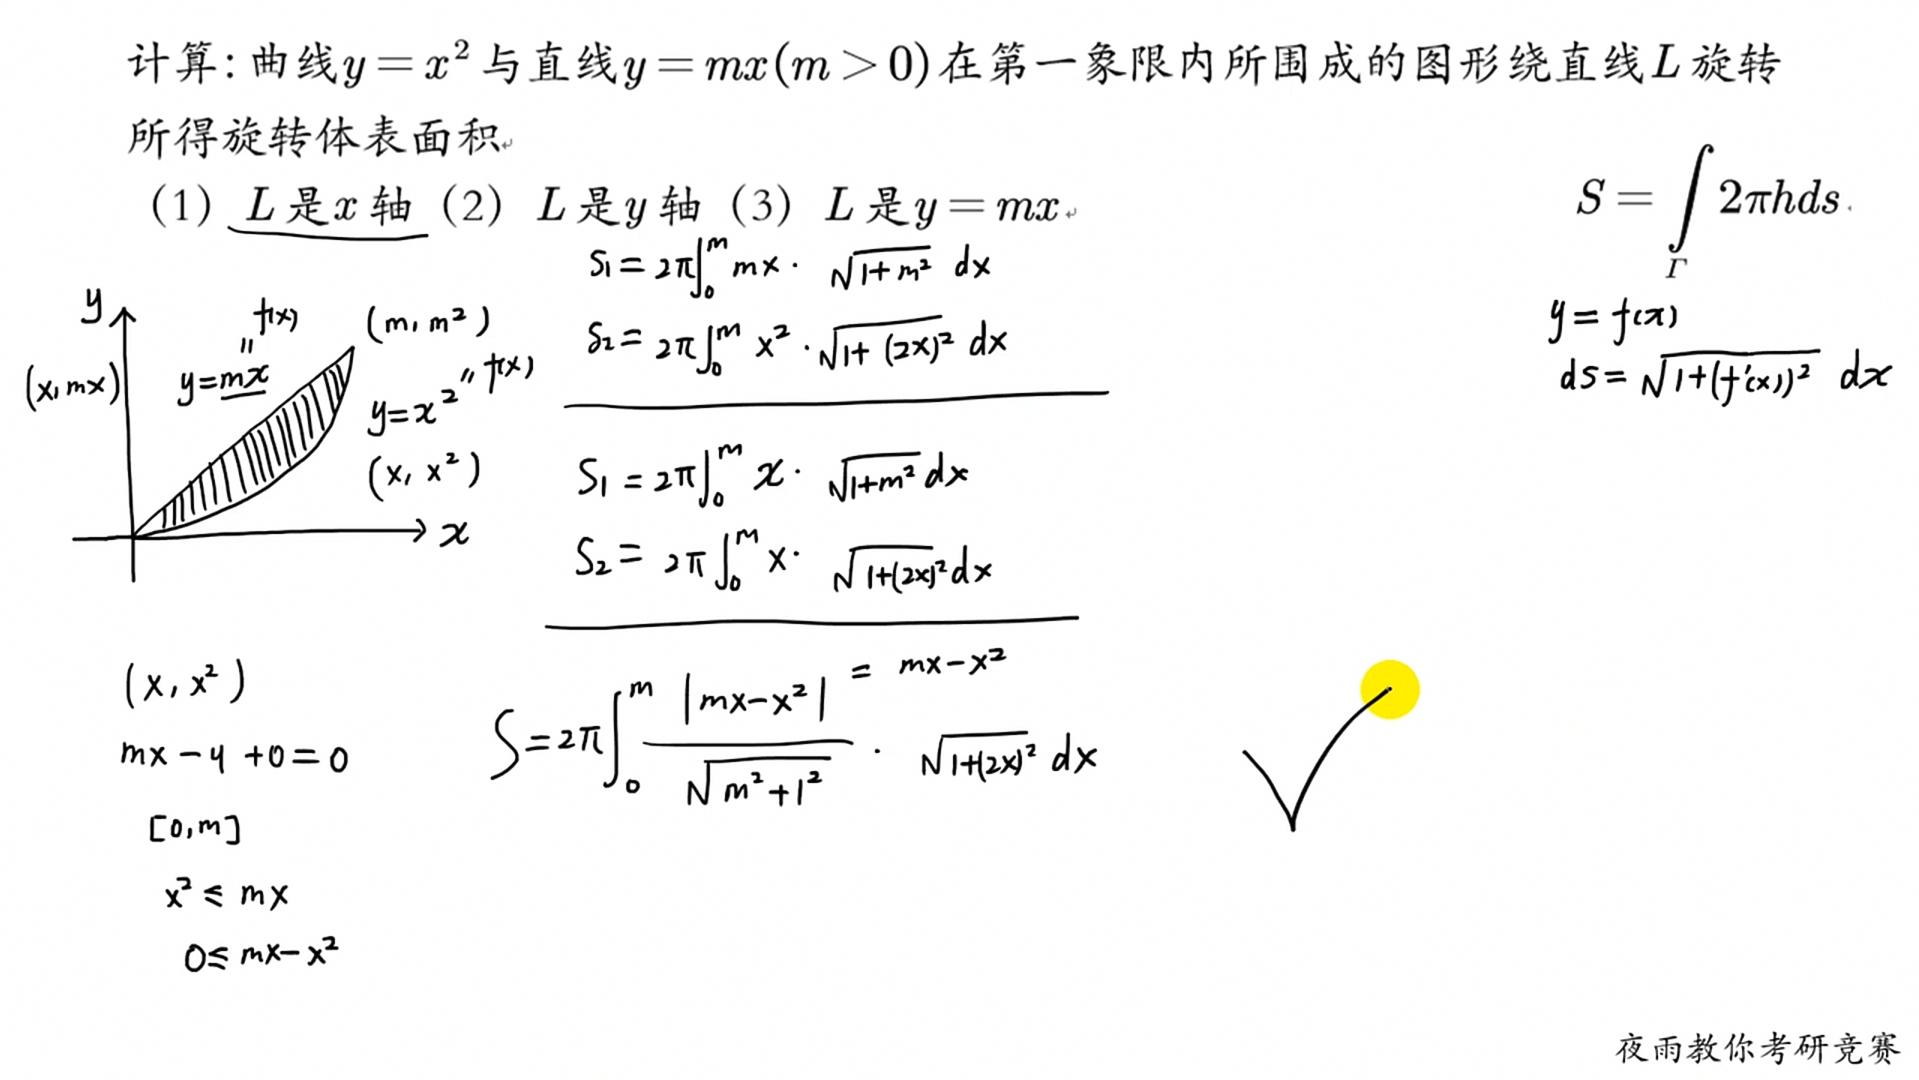 计算:曲线y=x²与直线y=mx(m>0)在第一象限内所围成的图形绕直线L旋转
所得旋转体表面积
(1) L是x轴 (2) L是y轴 (3) L是y=mx
S=∫_Γ 2πhds
y=f(x)
ds=√(1+(f'(x))²) dx
S₁=2π∫₀^m mx·√(1+m²) dx
S₂=2π∫₀^m x²·√(1+(2x)²) dx
y
f(x)
(m,m²)
(x,mx)
y=mx
"
y=x² " f(x)
(x,x²)
x
S₁=2π∫₀^m x·√(1+m²) dx
S₂=2π∫₀^m x·√(1+(2x)²) dx
(x,x²)
mx-y+0=0
[0,m]
x²≤mx
0≤mx-x²
S=2π∫₀^m |mx-x²|/√(m²+1²)·√(1+(2x)²) dx
=mx-x²
夜雨教你考研竞赛